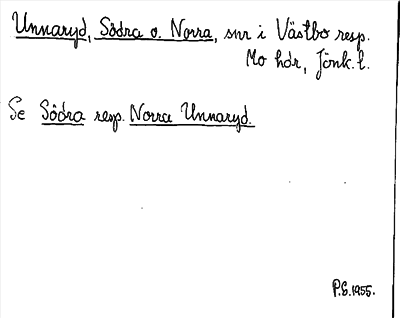 Unnaryd, Södra o. Norra, snr i Västbo resp.
Mo hdr, Jönk. l.
Se Södra resp. Norra Unnaryd.
P.G. 1955.